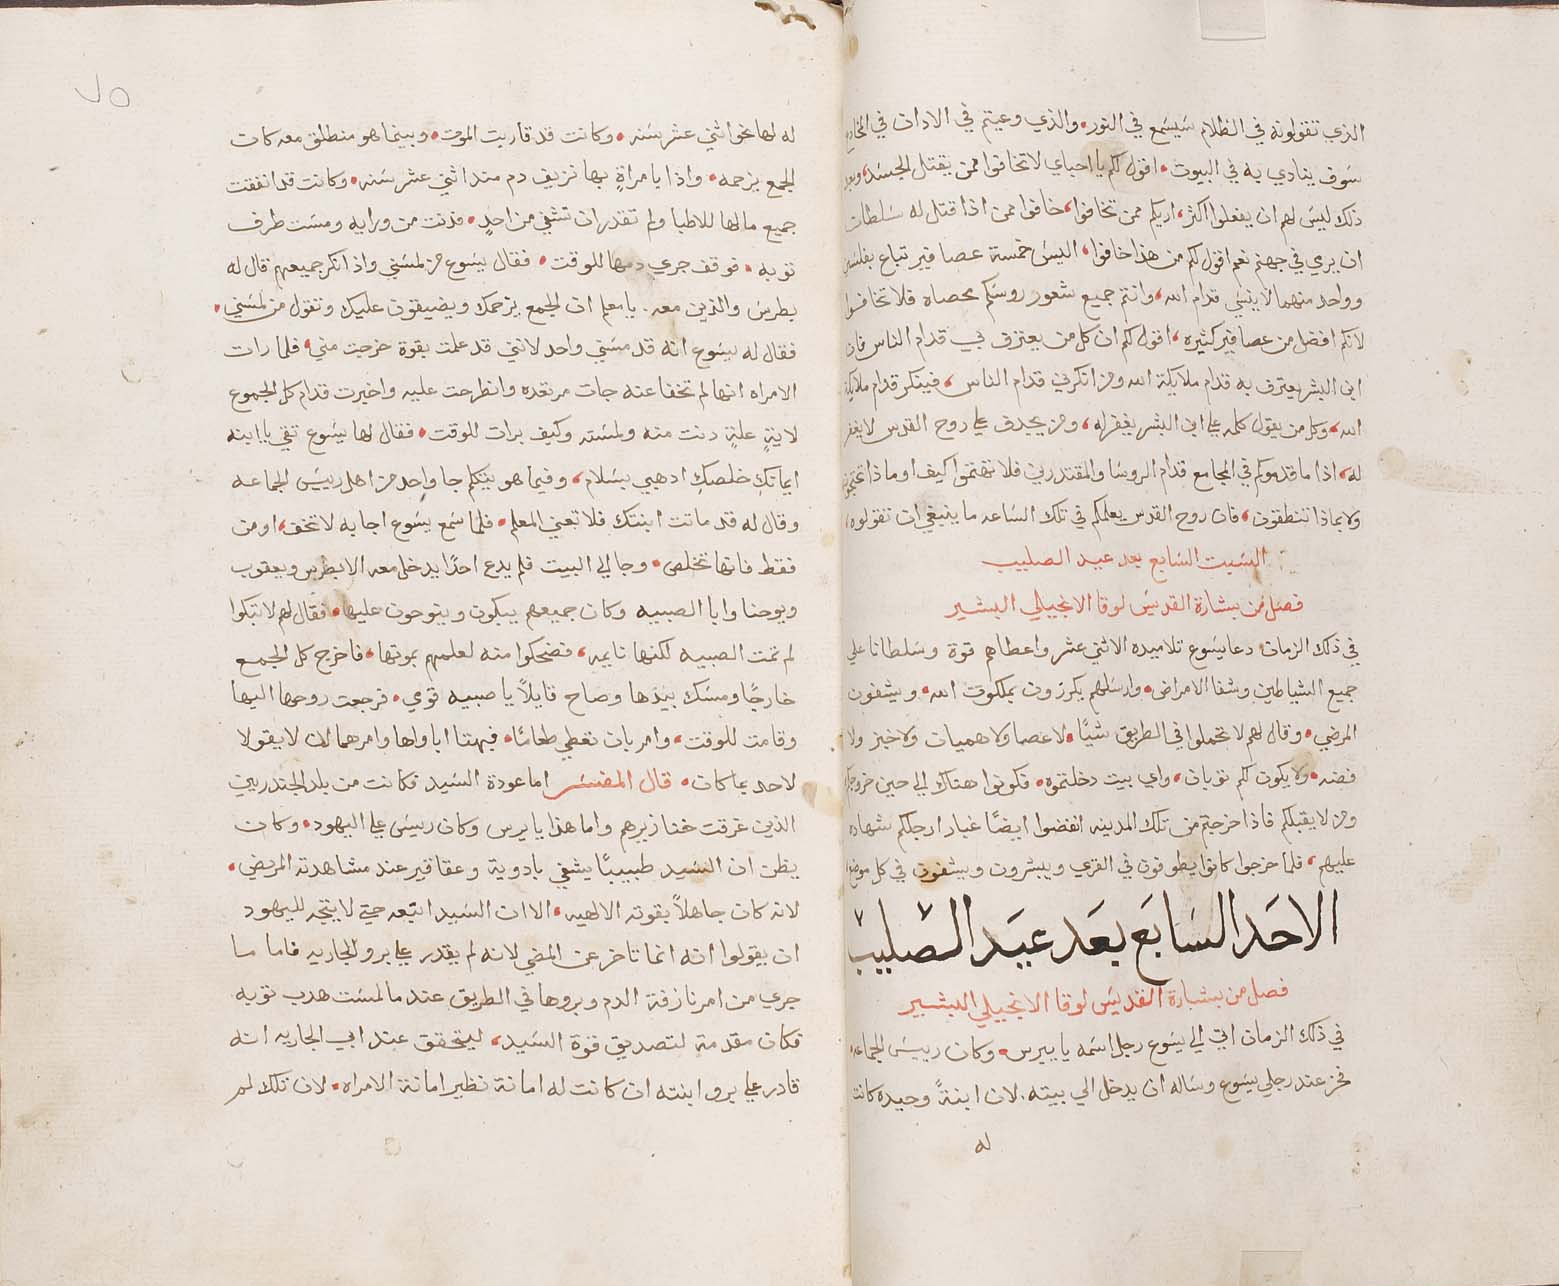 الذي تقولونه في الظلام سيسمع في النور والذي وعيتم في الاذان في المخادع
سوف ينادي به في البيوت اقول لكم يا احباي لا تخافوا ممن يقتل الجسد وبعد
ذلك ليس لهم ان يفعلوا اكثر اريكم ممن تخافوا خافوا ممن اذا قتل له سلطان
ان يرمي في جهنم نعم اقول لكم من هذا خافوا اليس خمسة عصافير تباع بفلسين
وواحد منهما لا ينسي قدام الله وانتم جميع شعور روسكم محصاه فلا تخافوا
لانكم افضل من عصافير كثيره اقول لكم ان كل من يعترف بي قدام الناس فان
ابن البشر يعترف به قدام ملايكة الله ومن انكرني قدام الناس فينكر قدام ملايكة
الله وكل من يقول كلمه علي ابن البشر يغفر له ومن يجدف علي روح القدس لا يغفر
له اذا ما قدموكم في المجامع قدام الروسا والمقتدرين فلا تهتموا كيف او ماذا تحتجون
ولا بماذا تنطقون فان روح القدس يعلمكم في تلك الساعه ما ينبغي ان تقولوه
السبت السابع بعد عيد الصليب
فصل من بشارة القديس لوقا الانجيلي البشير
في ذلك الزمان دعا يسوع تلاميده الاثني عشر واعطاهم قوة وسلطانا علي
جميع الشياطين وشفا الامراض وارسلهم يكرزون بملكوت الله ويشفون
المرضي وقال لهم لا تحملوا في الطريق شيًا لا عصا ولا هميان ولا خبز ولا
فضه ولا يكون لكم ثوبان واي بيت دخلتموه فكونوا هناك الي حين خروجكم
ومن لا يقبلكم فاذا خرجتم من تلك المدينه انفضوا ايضًا غبار ارجلكم شهادة
عليهم فلما خرجوا كانوا يطوفون في القري ويبشرون ويشفون في كل موضع
الاحد السابع بعد عيد الصليب
فصل من بشارة القديس لوقا الانجيلي البشير
في ذلك الزمان اتي الي يسوع رجل اسمه يا ييرس وكان رييس الجماعه
فخر عند رجلي يسوع وساله ان يدخل الي بيته لان ابنةً وحيده كانت
له
٧٥
له لها نحو اثني عشر سنه وكانت قد قاربت الموت وبينما هو منطلق معه كان
الجمع يزحمه واذا بامراةٍ بها نزيف دم مند اثني عشر سنه وكانت قد انفقت
جميع مالها للاطبا ولم تقدر ان تشفي من احدٍ فدنت من ورايه ومست طرف
ثوبه فوقف جري دمها للوقت فقال يسوع من لمسني واذ انكر جميعهم قال له
بطرس والذين معه يا معلم ان الجمع يزحمك ويضيقون عليك وتقول من لمسني
فقال له يسوع انه قد مسني واحد لانني قد علمت بقوة خرجت مني فلما رات
الامراه انها لم تخفا عنه جات مرتعده وانطرحت عليه واخبرت قدام كل الجموع
لايةٍ علةٍ دنت منه ولمسته وكيف برات للوقت فقال لها يسوع ثقي يا ابنه
ايمانكِ خلصكِ ادهبي بسلام وفيما هو يتكلم جا واحد من اهل رييس الجماعه
وقال له قد ماتت ابنتك فلا تعني المعلم فلما سمع يسوع اجابه لا تخف اومن
فقط فانها تخلص وجا الي البيت فلم يدع احدًا يدخل معه الا بطرس ويعقوب
ويوحنا وابا الصبيه وكان جميعهم يبكون وينوحون عليها فقال لهم لا تبكوا
لم تمت الصبيه لكنها نايمه فضحكوا منه لعلمهم بموتها فاخرج كل الجمع
خارجًا ومسك بيدها وصاح قايلاً يا صبيه قومي فرجعت روحها اليها
وقامت للوقت وامر بان تعطي طعامًا فبهتا ابا واها وامرهما ان لا يقولا
لاحد بما كان قال المفسر اما عودة السيد فكانت من بلد الجندريين
الذين غرقت خنازيرهم واما هذا يا يرس وكان رييس علي اليهود وكان
يظن ان السيد طبيبًا يشفي بادوية وعقاقير عند مشاهدته المريض
لانه كان جاهلاً بقوته الالهيه الا ان السيد اتبعه حتي لا يتجه لليهود
ان يقولوا انه انما تاخر عن المضي لانه لم يقدر علي برو الجاريه فاما ما
جري من امر نازفة الدم وبروها في الطريق عند ما لمست هدب ثوبه
فكان مقدمة لتصديق قوة السيد ليتحقق عند ابي الجاريه انه
قادر علي برو ابنته ان كانت له امانة نظير امانة الامراه لان تلك لم